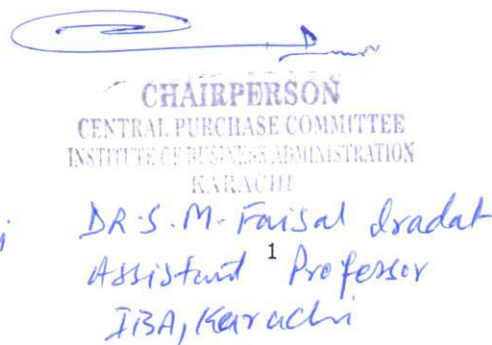 CHAIRPERSON
CENTRAL PURCHASE COMMITTEE
INSTITUTE OF BUSINESS ADMINISTRATION
KARACHI
i DR.S.M. Faisal Iradat
Assistant 1 Professor
IBA, Karachi